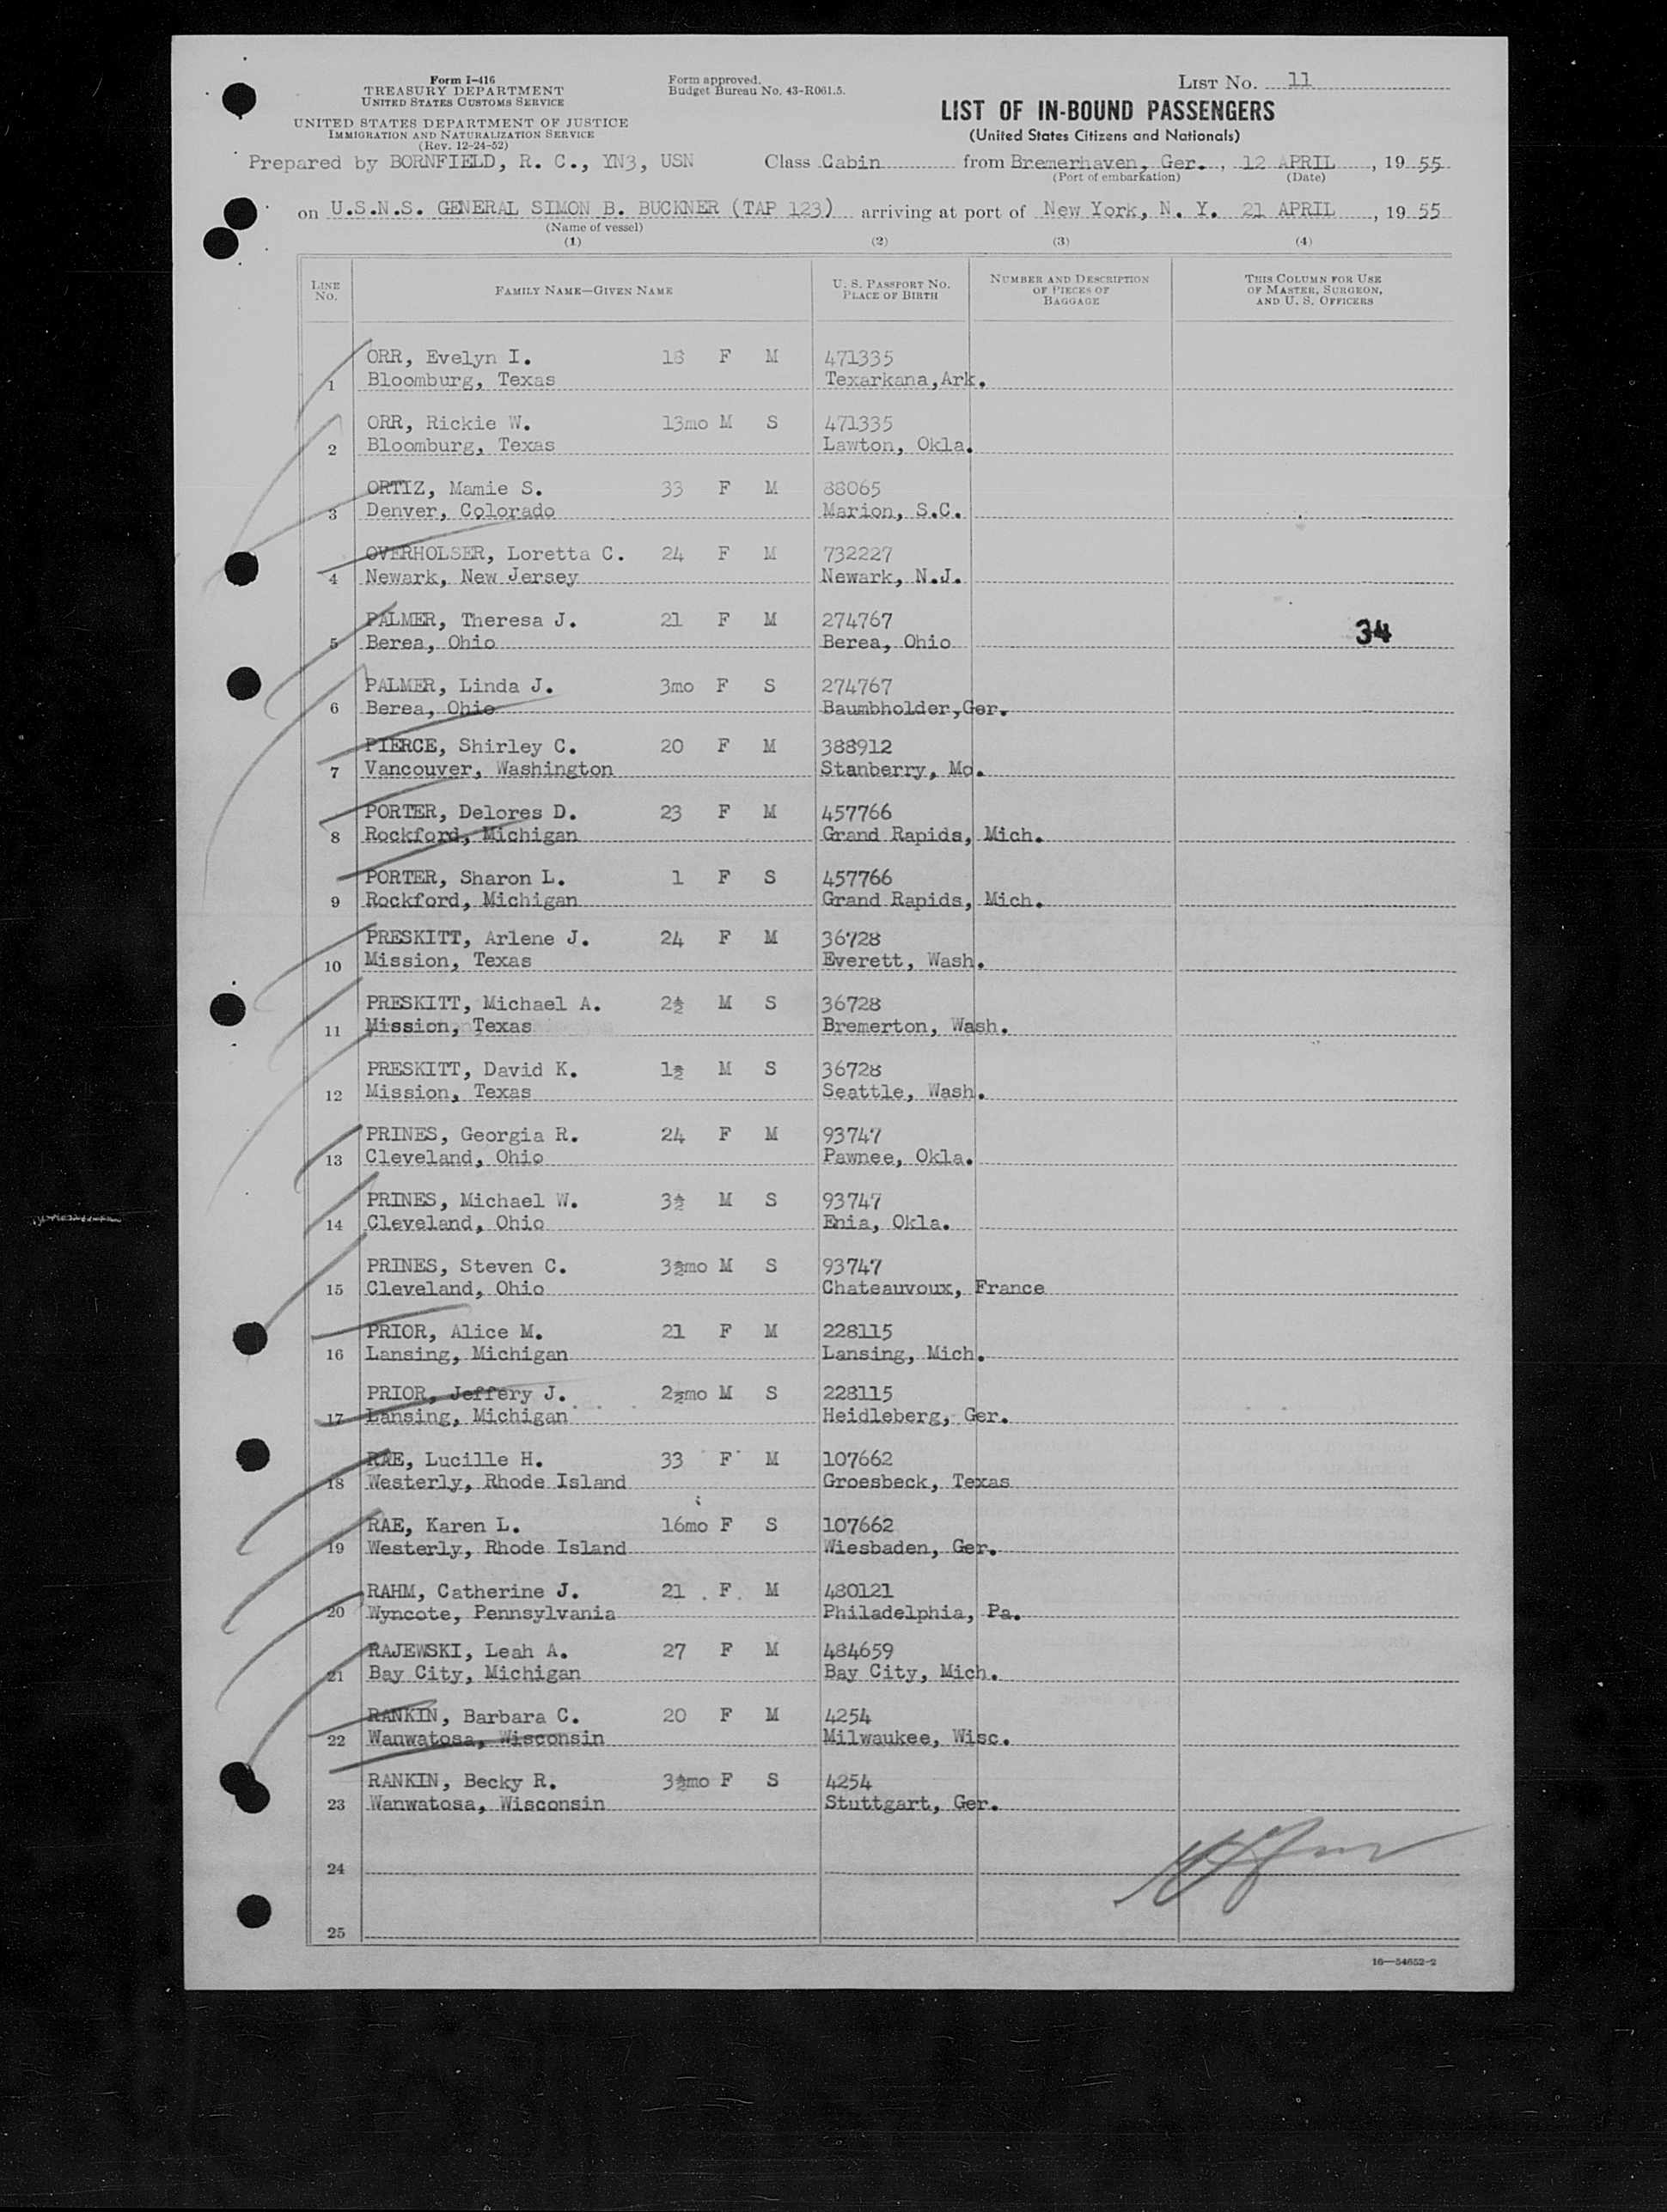 Form I-416
TREASURY DEPARTMENT
UNITED STATES CUSTOMS SERVICE
UNITED STATES DEPARTMENT OF JUSTICE
IMMIGRATION AND NATURALIZATION SERVICE
(Rev. 12-24-52)
Form approved.
Budget Bureau No. 43-R061.5.
LIST NO. 11
LIST OF IN-BOUND PASSENGERS
(United States Citizens and Nationals)
Prepared by BORNFIELD, R. C., YN3, USN Class Cabin from Bremerhaven, Ger., 12 APRIL, 19 55
(Port of embarkation) (Date)
on U.S.N.S. GENERAL SIMON B. BUCKNER (TAP 123) arriving at port of New York, N. Y. 21 APRIL, 19 55
(Name of vessel)
(1) (2) (3) (4)
LINE NO. FAMILY NAME—GIVEN NAME U. S. PASSPORT NO. PLACE OF BIRTH NUMBER AND DESCRIPTION OF PIECES OF BAGGAGE THIS COLUMN FOR USE OF MASTER, SURGEON, AND U. S. OFFICERS
ORR, Evelyn I. 18 F M 471335
1 Bloomburg, Texas Texarkana,Ark.
ORR, Rickie W. 13mo M S 471335
2 Bloomburg, Texas Lawton, Okla.
ORTIZ, Mamie S. 33 F M 88065
3 Denver, Colorado Marion, S.C.
OVERHOLSER, Loretta C. 24 F M 732227
4 Newark, New Jersey Newark, N.J.
PALMER, Theresa J. 21 F M 274767
5 Berea, Ohio Berea, Ohio 34
PALMER, Linda J. 3mo F S 274767
6 Berea, Ohio Baumbholder,Ger.
PIERCE, Shirley C. 20 F M 388912
7 Vancouver, Washington Stanberry, Mo.
PORTER, Delores D. 23 F M 457766
8 Rockford, Michigan Grand Rapids, Mich.
PORTER, Sharon L. 1 F S 457766
9 Rockford, Michigan Grand Rapids, Mich.
PRESKITT, Arlene J. 24 F M 36728
10 Mission, Texas Everett, Wash.
PRESKITT, Michael A. 2½ M S 36728
11 Mission, Texas Bremerton, Wash.
PRESKITT, David K. 1½ M S 36728
12 Mission, Texas Seattle, Wash.
PRINES, Georgia R. 24 F M 93747
13 Cleveland, Ohio Pawnee, Okla.
PRINES, Michael W. 3½ M S 93747
14 Cleveland, Ohio Enia, Okla.
PRINES, Steven C. 3½mo M S 93747
15 Cleveland, Ohio Chateauvoux, France
PRIOR, Alice M. 21 F M 228115
16 Lansing, Michigan Lansing, Mich.
PRIOR, Jeffery J. 2½mo M S 228115
17 Lansing, Michigan Heidleberg, Ger.
RAE, Lucille H. 33 F M 107662
18 Westerly, Rhode Island Groesbeck, Texas
RAE, Karen L. 16mo F S 107662
19 Westerly, Rhode Island Wiesbaden, Ger.
RAHM, Catherine J. 21 F M 480121
20 Wyncote, Pennsylvania Philadelphia, Pa.
RAJEWSKI, Leah A. 27 F M 484659
21 Bay City, Michigan Bay City, Mich.
RANKIN, Barbara C. 20 F M 4254
22 Wanwatosa, Wisconsin Milwaukee, Wisc.
RANKIN, Becky R. 3½mo F S 4254
23 Wanwatosa, Wisconsin Stuttgart, Ger.
24
25
16—54652-2